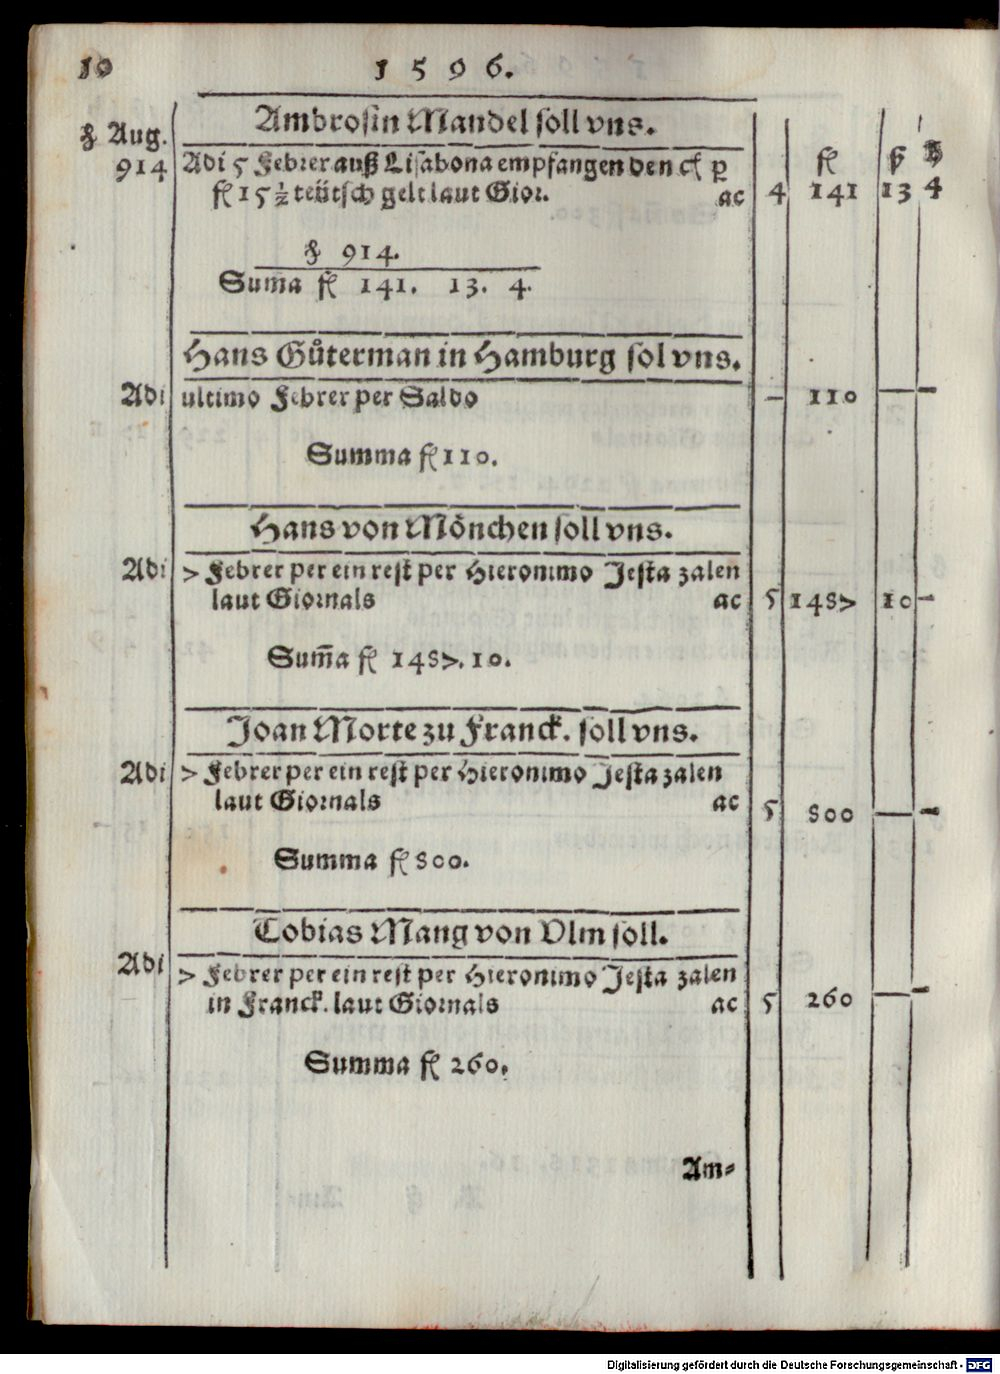 10 1 5 9 6.
Ambrosin Mandel soll vns.
℔ Aug. fl ß ₰
914 Adi 5 Febrer auß Lisabona empfangen den ct p
fl 15 ½ teütsch gelt laut Gior. ac 4 141 13 4
℔ 914.
Sum̃a fl 141. 13. 4.
Hans Gůterman in Hamburg sol vns.
Adi ultimo Febrer per Saldo — 110 — —
Summa fl 110.
Hans von Mönchen soll vns.
Adi 7 Febrer per ein rest per Hieronimo Jesta zalen
laut Giornals ac 5 1487 10 —
Sum̃a fl 1487. 10.
Joan Morte zu Franck. soll vns.
Adi 7 Febrer per ein rest per Hieronimo Jesta zalen
laut Giornals ac 5 800 — —
Summa fl 800.
Tobias Mang von Vlm soll.
Adi 7 Febrer per ein rest per Hieronimo Jesta zalen
in Franck. laut Giornals ac 5 260 — —
Summa fl 260.
Am-
Digitalisierung gefördert durch die Deutsche Forschungsgemeinschaft - DFG